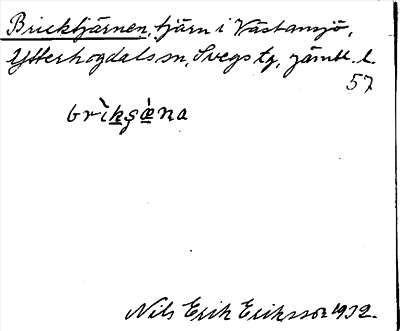 Bricktjärnen, tjärn i Västansjö,
Ytterhogdals sn, Svegs tg, Jämtl. l.
57
brìkʂæ̀na
Nils Erik Eriksson 1932.